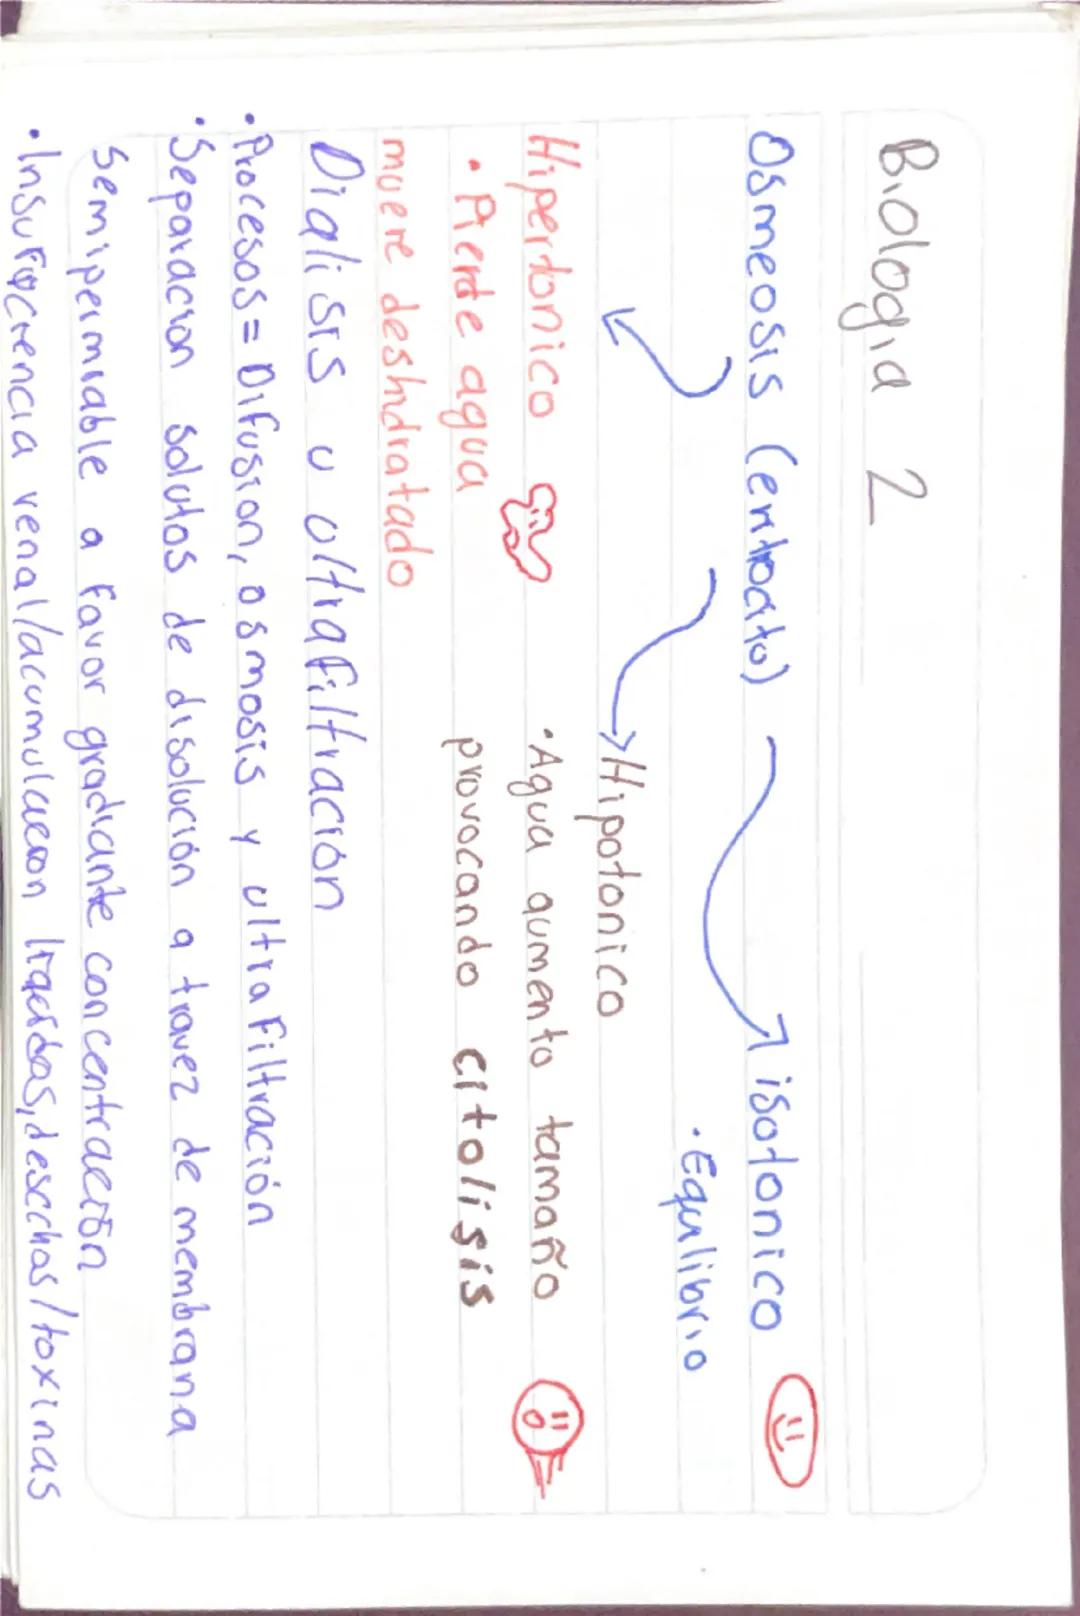 Biologia 2
Osmeosis (entrocito)
isotonico
• Equlibrio
Hipotonico
Hipertonico
• Pierde agua
muere deshidratado
• Agua aumento tamaño
provocando citolisis
Dialisis u ultrafiltración
• Procesos = Difusion, osmosis y ultrafiltración
• Separacion solutos de disolución a travez de membrana
semipermiable a favor gradiante concentración
• Insuficiencia renal/acumulacion liquidos, desechos/toxinas